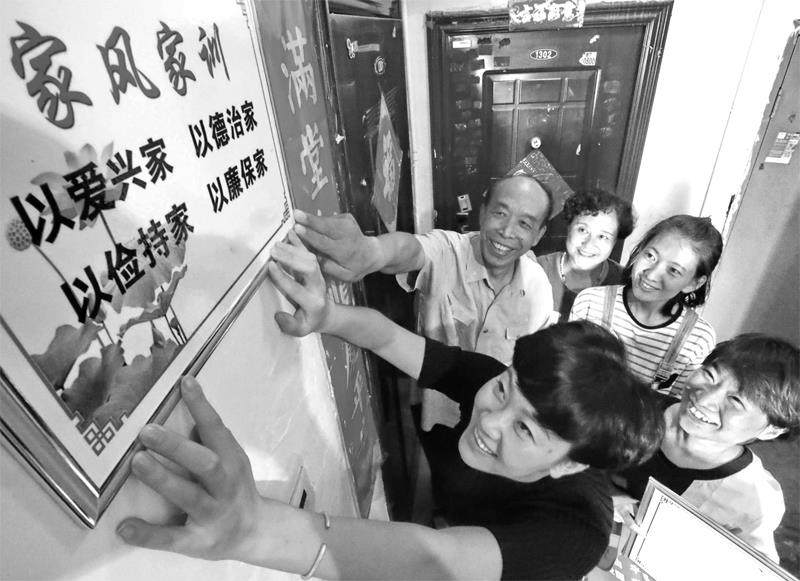 家风家训
以爱兴家 以德治家
以俭持家 以廉保家
满堂
1302